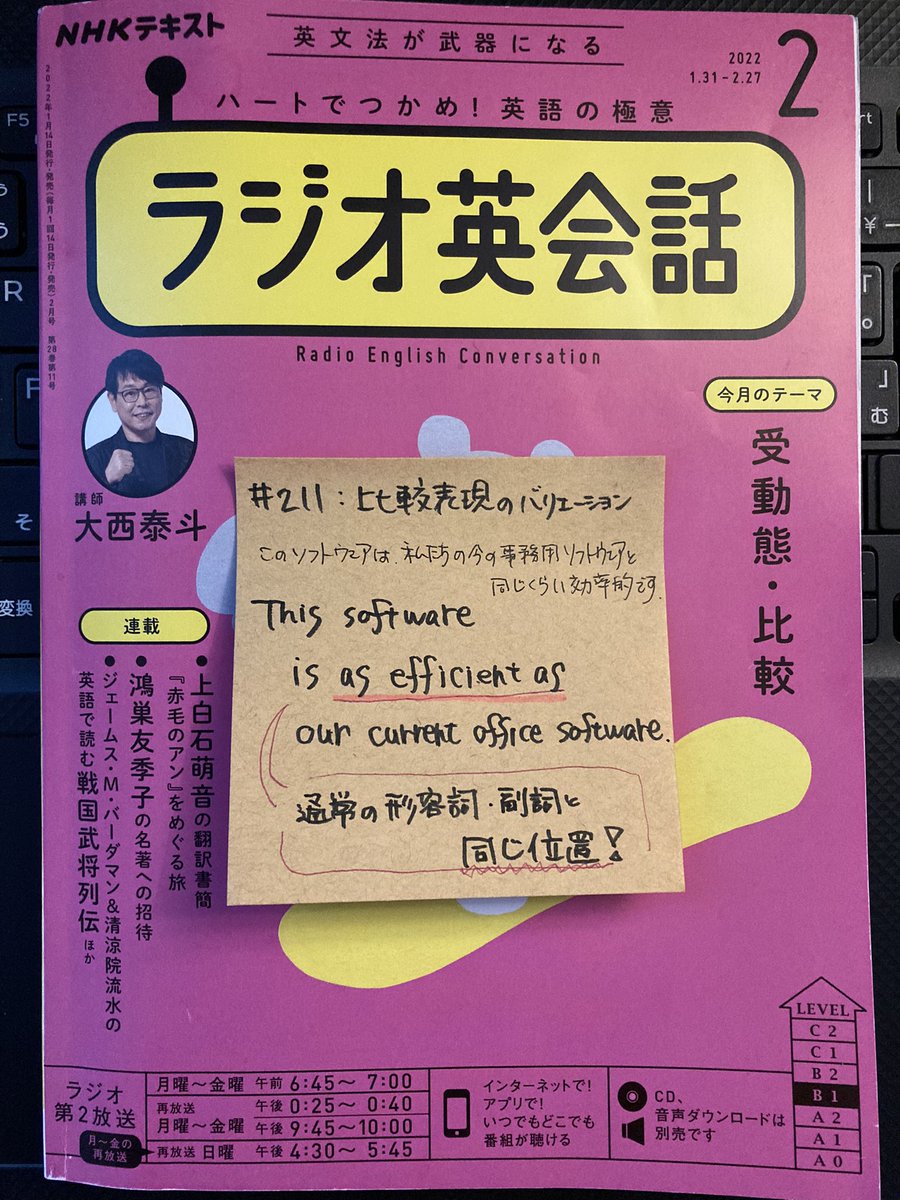 NHKテキスト
英文法が武器になる
2022
1.31-2.27
2
ハートでつかめ!英語の極意
ラジオ英会話
Radio English Conversation
2022年1月14日発行・発売(毎月1回14日発行・発売)2月号 第28巻第11号
今月のテーマ
受動態・比較
講師
大西泰斗
連載
●上白石萌音の翻訳書簡
『赤毛のアン』をめぐる旅
●鴻巣友季子の名著への招待
●ジェームス・M・バーダマン&清涼院流水の
英語で読む戦国武将列伝 ほか
#211:比較表現のバリエーション
このソフトウェアは、私たちの今の事務用ソフトウェアと
同じくらい効率的です.
This software
is as efficient as
our current office software.
通常の形容詞・副詞と
同じ位置!
LEVEL
C2
C1
B2
B1
A2
A1
A0
ラジオ
第2放送
月~金の
再放送
月曜~金曜 午前 6:45~ 7:00
再放送 午後 0:25~ 0:40
月曜~金曜 午後 9:45~10:00
再放送 日曜 午後 4:30~ 5:45
インターネットで!
アプリで!
いつでもどこでも
番組が聴ける
CD、
音声ダウンロードは
別売です
F5
R
F
そ
変換
う
う
¥
ー
「
°
」
む